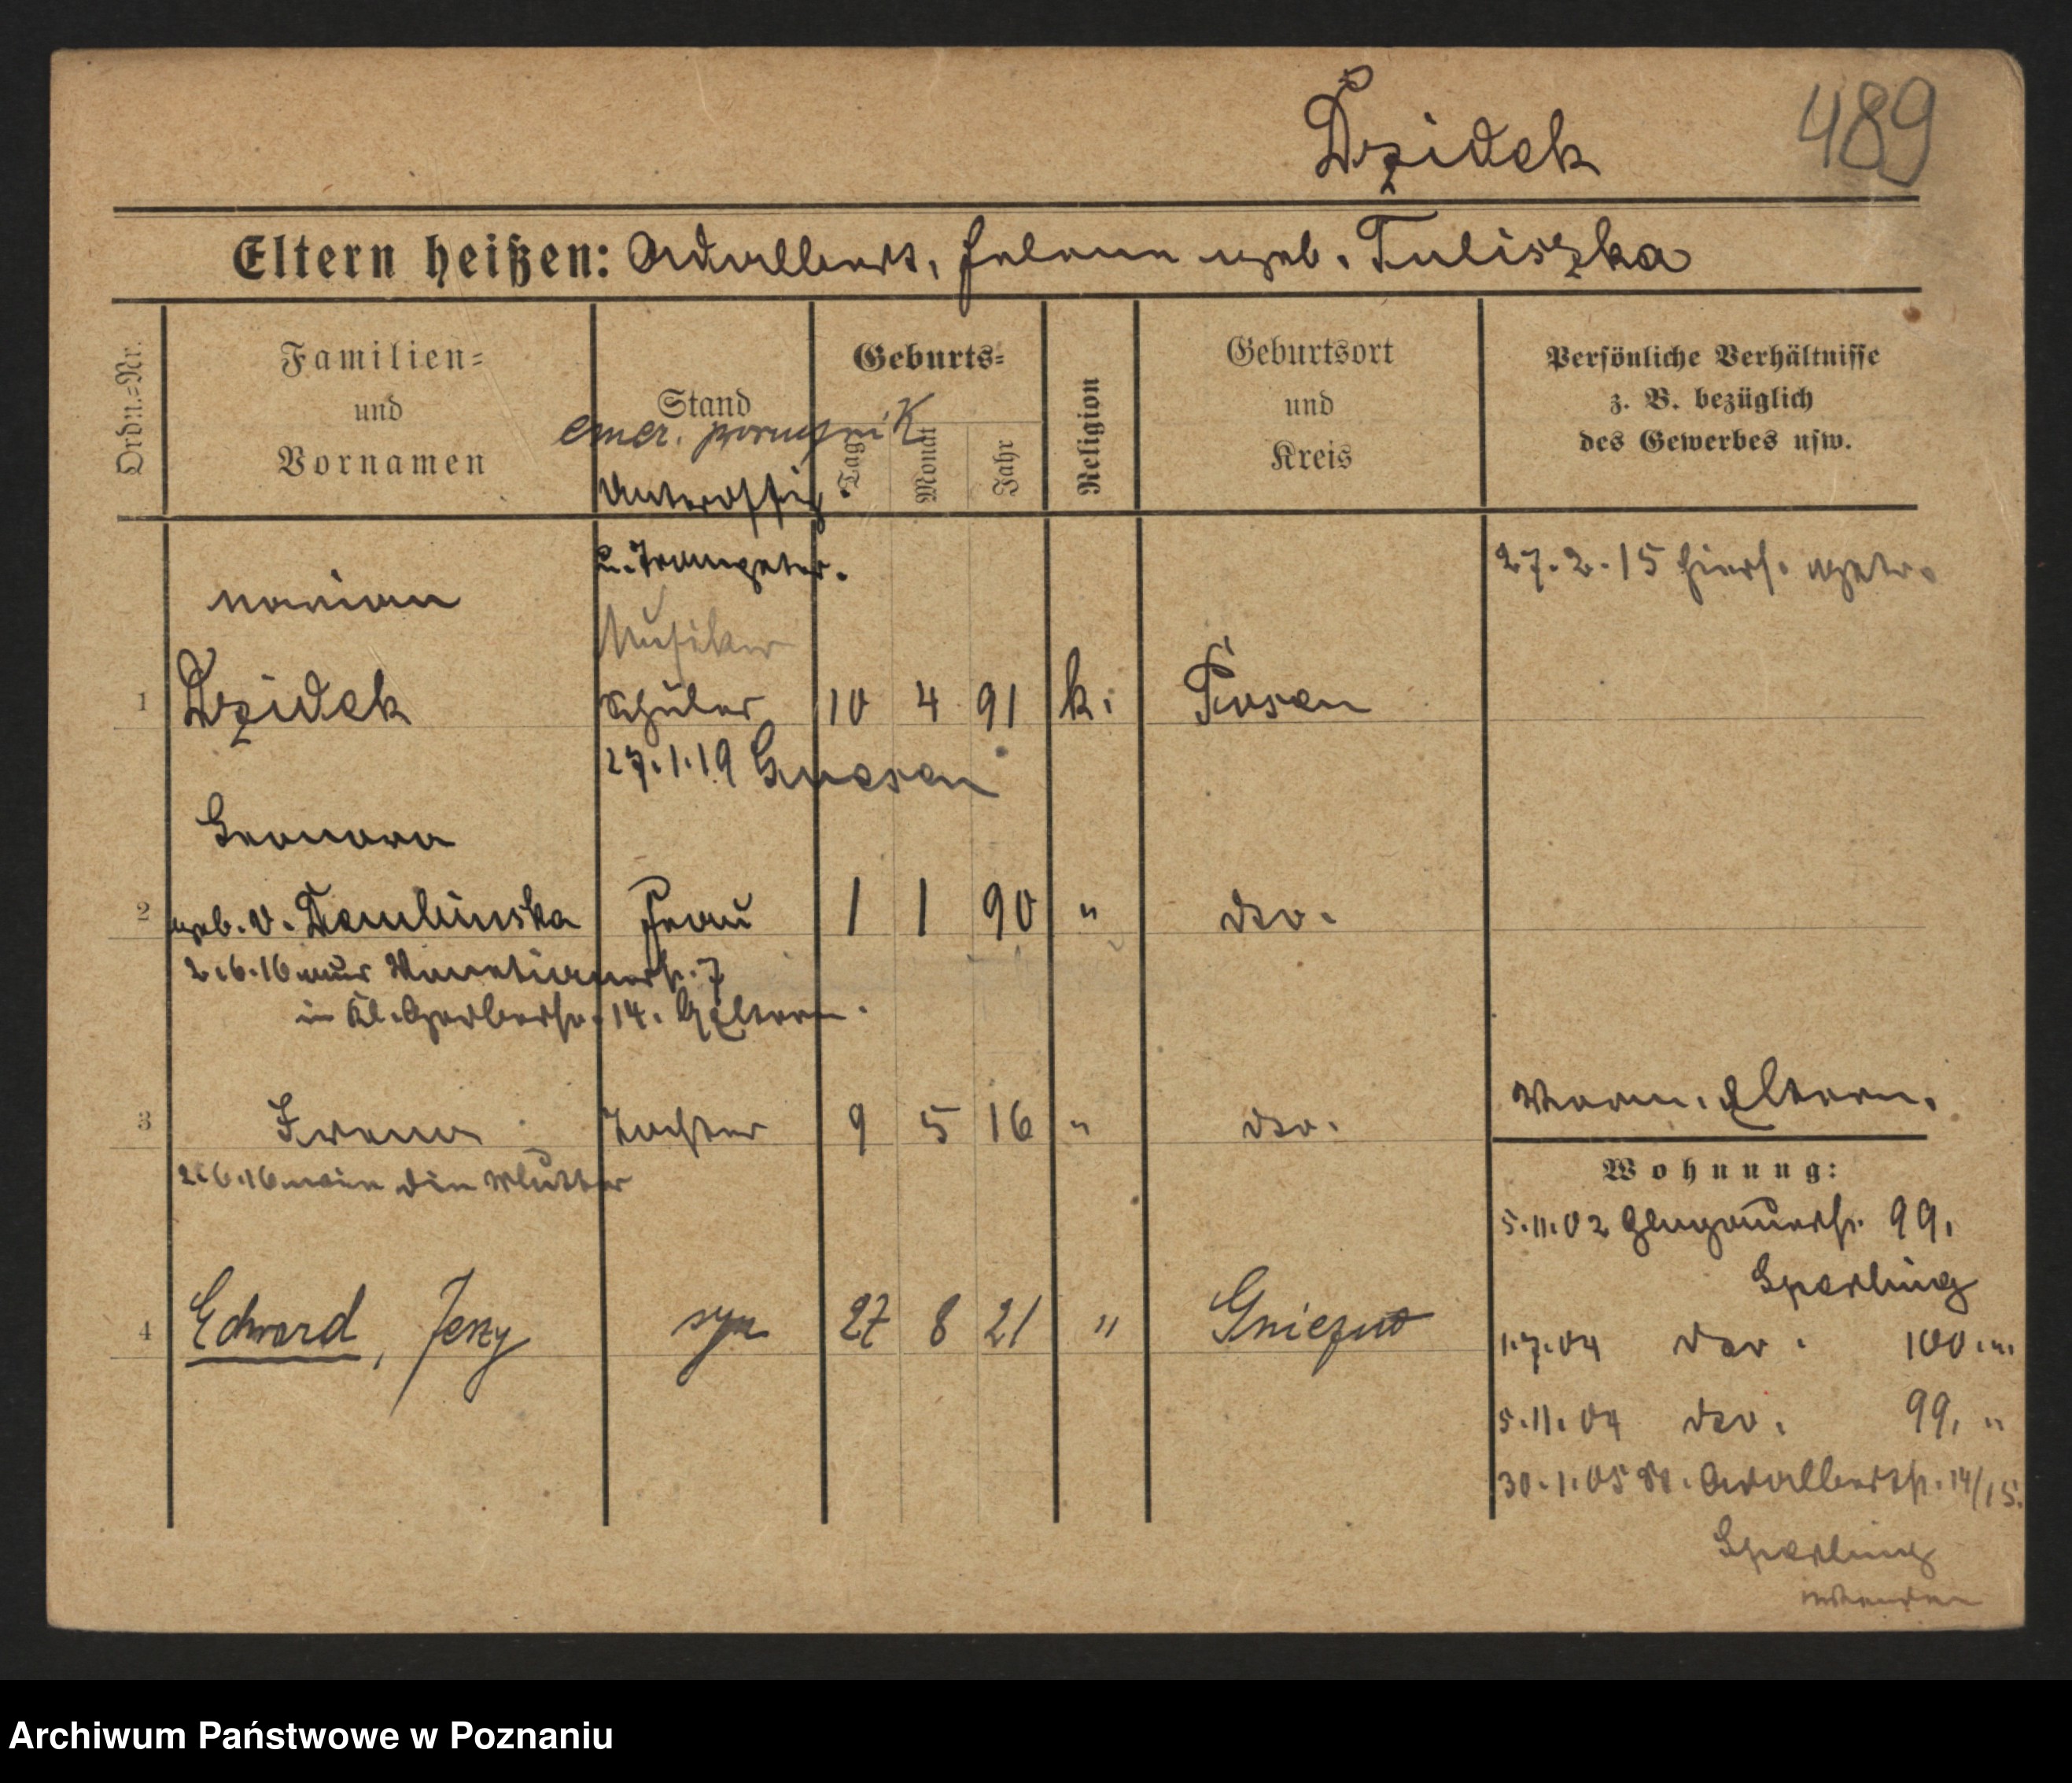 Dzidek
489
Eltern heißen: Adalbert, Helene geb. Tuliszka
Ordn.=Nr.
Familien=
und
Vornamen
Stand
emer. porucznik
Unteroffiz.
Geburts=
Tag
Monat
Jahr
Religion
Geburtsort
und
Kreis
Persönliche Verhältnisse
z. B. bezüglich
des Gewerbes usw.
u. Trompeter.
27. 2. 15 hiers. getr.
Marian
Musiker
1 Dzidek Schüler 10 4 91 k. Posen
27. 1. 19 Gnesen
Leonora
2 geb. v. Dembinska Frau 1 1 90 " dto.
2. 6. 16 aus 7
in Kl. Gerberstr. 14. Eltern.
3 Irena Tochter 9 5 16 " dto.
Eltern.
2. 6. 16 wie die Mutter
Wohnung:
5. 11. 02 Glogauerstr. 99,
Sperling
4 Edward, Jerzy syn 27 8 21 " Gniezno
1. 7. 04 dto. 100.
5. 11. 04 dto. 99, "
30. 1. 05 Adalbertstr. 14/15.
Sperling
Archiwum Państwowe w Poznaniu